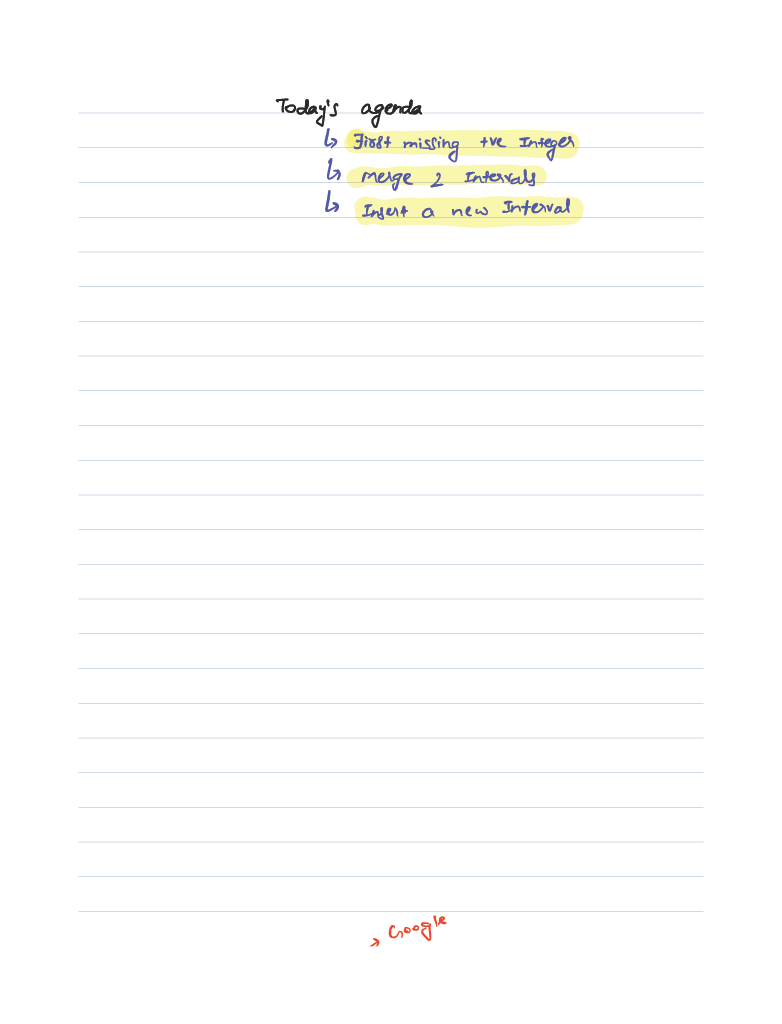 Today's agenda
↳ First missing +ve Integer
↳ Merge 2 Intervals
↳ Insert a new Interval
→ Google